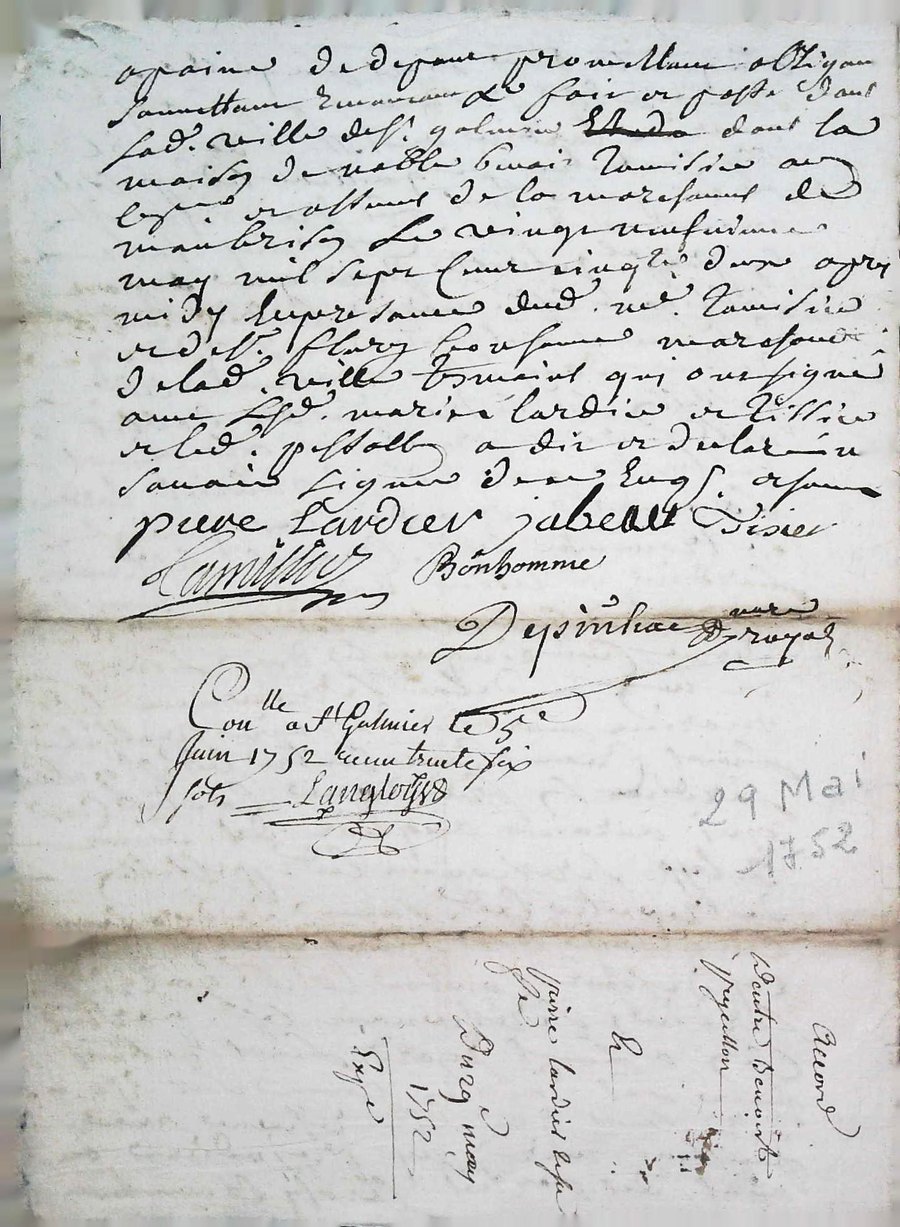 a paine de depans promettant obligeant
soumettant Renoncant &c fait et passé dans
lad.e ville de St. galmier dans la
maison de noble benoit Ramisier
et assesseur de la marechaussée de
montbrison Le vingt neufvieme
may mil sept Cent cinq.te deux apres
midy En presence dud. ne. Ramisier
et de Sr. fleury bonhomme marchand
de lad. ville temoins qui ont signé
avec Led. mariés lardier et tissier
et led. a dit et declaré ne
savoir signer de ce Enq.s et
piere Lardier jabeau Tisier
Ramissier Bonhomme
Depinhac nore Royal
Con.lle a St Galmier le 5e
Juin 1752 recu trente six
sols Langlois
29 Mai
1752
Accord
D'entre Benoist
Et
pierre lardier et sa
fe
Du 29e may
1752
Expe